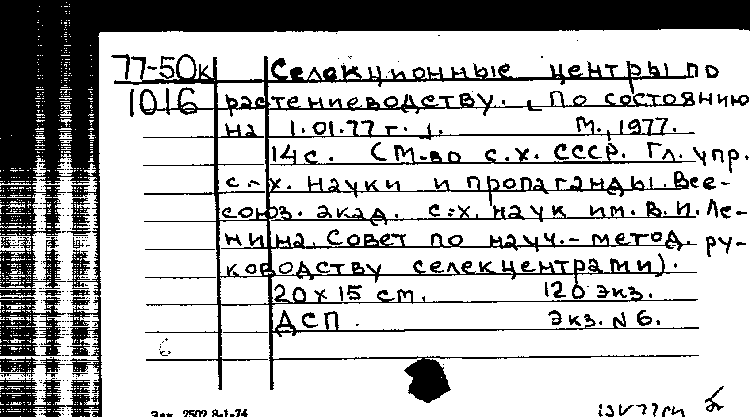 77-50к Селекционные центры по
1016 растениеводству. [По состоянию
на 1.01.77 г.]. М., 1977.
14 с. (М-во с.х. СССР. Гл. упр.
с-х. науки и пропаганды. Все-
союз. акад. с.-х. наук им. В.И. Ле-
нина. Совет по науч.-метод. ру-
ководству селекцентрами).
20 х 15 см. 120 экз.
ДСП. Экз. N 6.
6
Зак. 2502 8-1-74